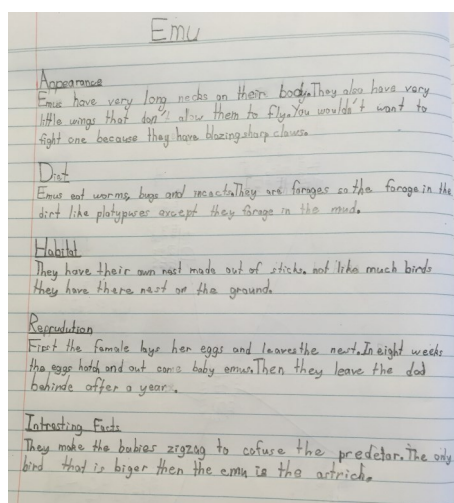 Emu
Appearance
Emus have very long necks on their body.They also have very
little wings that don't alow them to fly.You wouldn't want to
fight one because they have blazing sharp claws.
Diat
Emus eat worms, bugs and incects.They are forages so the forage in the
dirt like platypuses except they forage in the mud.
Habitat
They have their own nest made out of sticks. not like much birds
they have there nest on the ground.
Reprudution
First the female lays her eggs and leaves the nest.In eight weeks
the eggs hatch and out come baby emus.Then they leave the dad
behinde after a year.
Intresting Facts
They make the babies zigzag to cofuse the predetar.The only
bird that is biger then the emu is the ostrich.